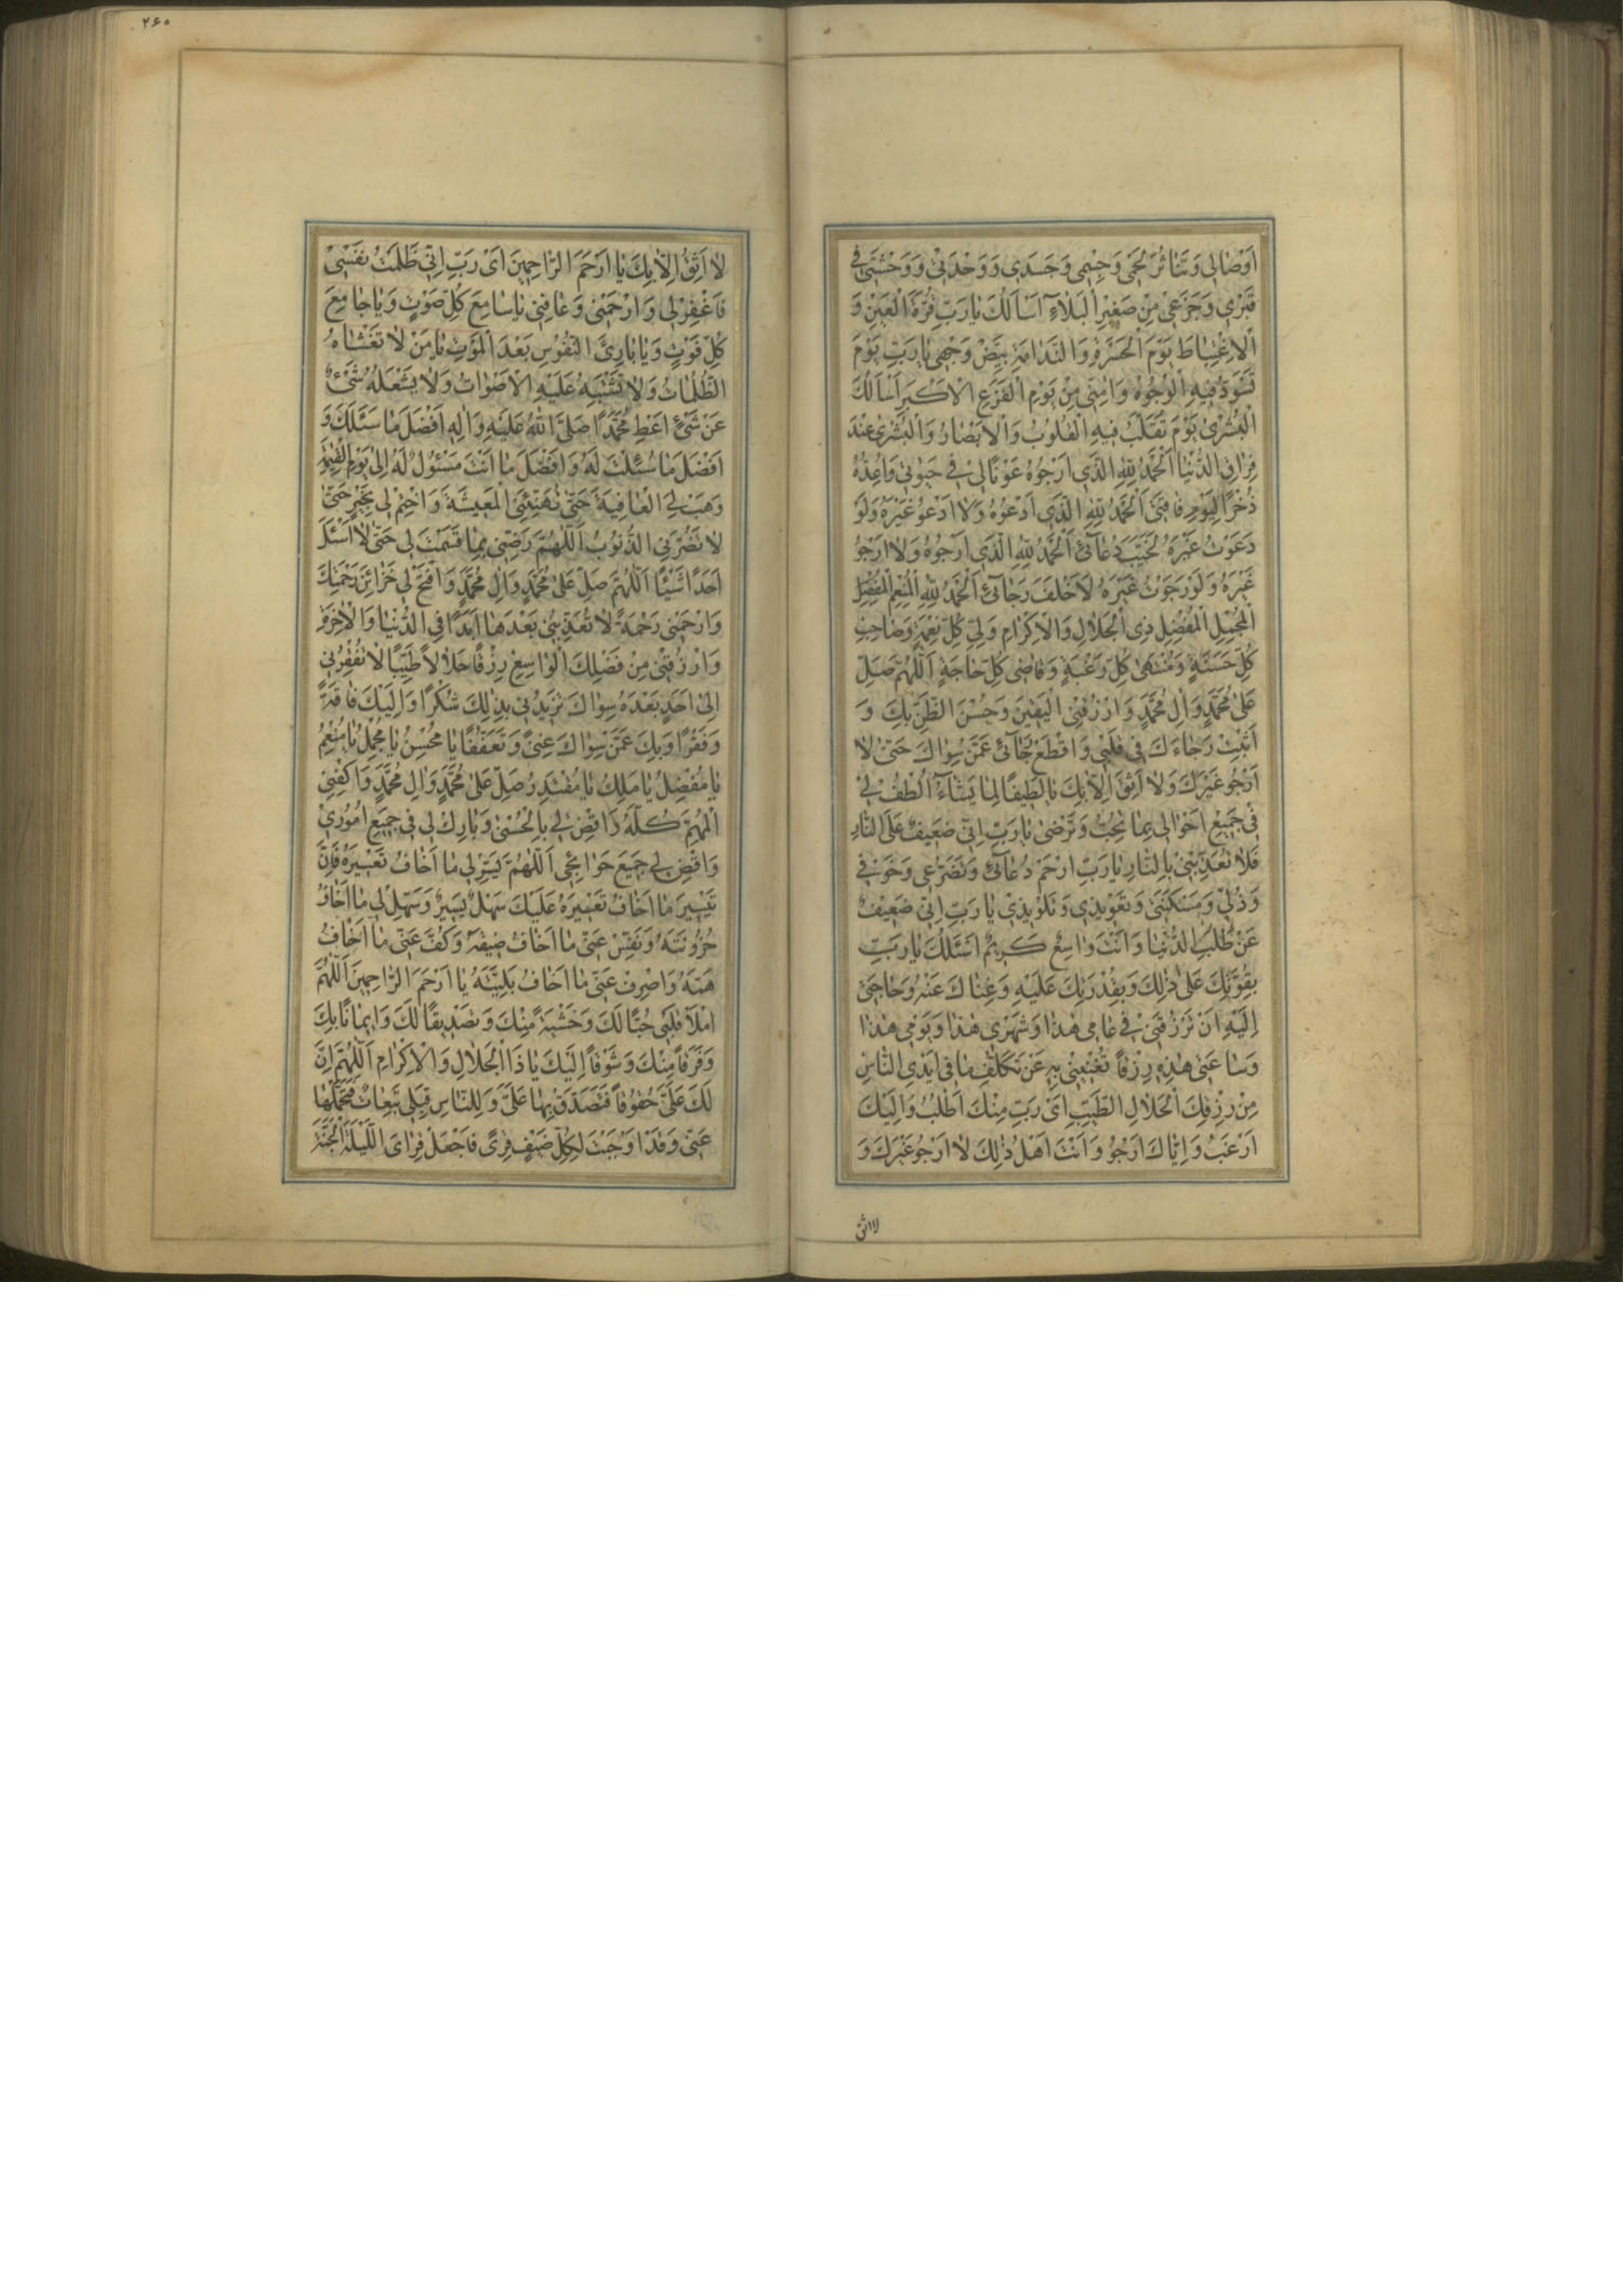 اَوْصٰالِي وَتَنٰاثُرَ لَحْمِي وَجِسْمِي وَجَسَدِي وَوَحْدَتِي وَوَحْشَتِي فِي
قَبْرِي وَجَزَعِي مِنْ صَغِيرِ الْبَلٰاءِ اَسْاَلُكَ يٰا رَبِّ قُرَّةَ الْعَيْنِ وَ
الْاِغْتِبٰاطَ يَوْمَ الْحَسْرَةِ وَالنَّدٰامَةِ بَيِّضْ وَجْهِي يٰا رَبِّ يَوْمَ
تَسْوَدُّ فِيهِ الْوُجُوهُ وَاٰمِنِّي مِنْ يَوْمِ الْفَزَعِ الْاَكْبَرِ اَسْاَلُكَ
الْبُشْرٰى يَوْمَ تُقَلَّبُ فِيهِ الْقُلُوبُ وَالْاَبْصٰارُ وَالْبُشْرٰى عِنْدَ
فِرٰاقِ الدُّنْيٰا اَلْحَمْدُ لِلّٰهِ الَّذِي اَرْجُوهُ عَوْنًا لِي فِي حَيٰوتِي وَاُعِدُّهُ
ذُخْرًا لِيَوْمِ فٰاقَتِي اَلْحَمْدُ لِلّٰهِ الَّذِي اَدْعُوهُ وَلٰا اَدْعُو غَيْرَهُ وَلَوْ
دَعَوْتُ غَيْرَهُ لَخَيَّبَ دُعٰآئِي اَلْحَمْدُ لِلّٰهِ الَّذِي اَرْجُوهُ وَلٰا اَرْجُو
غَيْرَهُ وَلَوْ رَجَوْتُ غَيْرَهُ لَاَخْلَفَ رَجٰآئِي اَلْحَمْدُ لِلّٰهِ الْمُنْعِمِ الْمُفْضِلِ
الْمُجْمِلِ الْمُفْضِلِ ذِي الْجَلٰالِ وَالْاِكْرٰامِ وَلِيِّ كُلِّ نِعْمَةٍ وَصٰاحِبِ
كُلِّ حَسَنَةٍ وَمُنْتَهٰى كُلِّ رَغْبَةٍ وَقٰاضِي كُلِّ حٰاجَةٍ اَللّٰهُمَّ صَلِّ
عَلٰى مُحَمَّدٍ وَاٰلِ مُحَمَّدٍ وَارْزُقْنِي الْيَقِينَ وَحُسْنَ الظَّنِّ بِكَ وَ
اَثْبِتْ رَجٰاءَكَ فِي قَلْبِي وَاقْطَعْ رَجٰآئِي عَمَّنْ سِوٰاكَ حَتّٰى لٰا
اَرْجُوَ غَيْرَكَ وَلٰا اَثِقَ اِلّٰا بِكَ يٰا لَطِيفًا لِمٰا يَشٰآءُ اُلْطُفْ لِي
فِي جَمِيعِ اَحْوٰالِي بِمٰا تُحِبُّ وَتَرْضٰى يٰا رَبِّ اِنِّي ضَعِيفٌ عَلَى النّٰارِ
فَلٰا تُعَذِّبْنِي بِالنّٰارِ يٰا رَبِّ ارْحَمْ دُعٰآئِي وَتَضَرُّعِي وَخَوْفِي
وَذُلِّي وَمَسْكَنَتِي وَتَعْوِيذِي وَتَلْوِيذِي يٰا رَبِّ اِنِّي ضَعِيفٌ
عَنْ طَلَبِ الدُّنْيٰا وَاَنْتَ وٰاسِعٌ كَرِيمٌ اَسْئَلُكَ يٰا رَبِّ
بِقُوَّتِكَ عَلٰى ذٰلِكَ وَبِقُدْرَتِكَ عَلَيْهِ وَغِنٰاكَ عَنْهُ وَحٰاجَتِي
اِلَيْهِ اَنْ تَرْزُقَنِي فِي عٰامِي هٰذٰا وَشَهْرِي هٰذٰا وَيَوْمِي هٰذٰا
وَسٰاعَتِي هٰذِهِ رِزْقًا تُغْنِينِي بِهِ عَنْ تَكَلُّفِ مٰا فِي اَيْدِي النّٰاسِ
مِنْ رِزْقِكَ الْحَلٰالِ الطَّيِّبِ اَيْ رَبِّ مِنْكَ اَطْلُبُ وَاِلَيْكَ
اَرْغَبُ وَاِيّٰاكَ اَرْجُو وَاَنْتَ اَهْلُ ذٰلِكَ لٰا اَرْجُو غَيْرَكَ وَ
لا اثق
۲۶۰
لٰا اَثِقُ اِلّٰا بِكَ يٰا اَرْحَمَ الرّٰاحِمِينَ اَيْ رَبِّ اِنِّي ظَلَمْتُ نَفْسِي
فَاغْفِرْ لِي وَارْحَمْنِي وَعٰافِنِي يٰا سٰامِعَ كُلِّ صَوْتٍ وَيٰا جٰامِعَ
كُلِّ فَوْتٍ وَيٰا بٰارِئَ النُّفُوسِ بَعْدَ الْمَوْتِ يٰا مَنْ لٰا تَغْشٰاهُ
الظُّلُمٰاتُ وَلٰا تَشْتَبِهُ عَلَيْهِ الْاَصْوٰاتُ وَلٰا يَشْغَلُهُ شَيْءٌ
عَنْ شَيْءٍ اَعْطِ مُحَمَّدًا صَلَّى اللّٰهُ عَلَيْهِ وَاٰلِهِ اَفْضَلَ مٰا سَئَلَكَ وَ
اَفْضَلَ مٰا سُئِلْتَ لَهُ وَاَفْضَلَ مٰا اَنْتَ مَسْئُولٌ لَهُ اِلٰى يَوْمِ الْقِيٰمَةِ
وَهَبْ لِيَ الْعٰافِيَةَ حَتّٰى تُهَنِّئَنِي الْمَعِيشَةَ وَاخْتِمْ لِي بِخَيْرٍ حَتّٰى
لٰا تَضُرَّنِي الذُّنُوبُ اَللّٰهُمَّ رَضِّنِي بِمٰا قَسَمْتَ لِي حَتّٰى لٰا اَسْئَلَ
اَحَدًا شَيْئًا اَللّٰهُمَّ صَلِّ عَلٰى مُحَمَّدٍ وَاٰلِ مُحَمَّدٍ وَافْتَحْ لِي خَزٰائِنَ رَحْمَتِكَ
وَارْحَمْنِي رَحْمَةً لٰا تُعَذِّبُنِي بَعْدَهٰا اَبَدًا فِي الدُّنْيٰا وَالْاٰخِرَةِ
وَارْزُقْنِي مِنْ فَضْلِكَ الْوٰاسِعِ رِزْقًا حَلٰالًا طَيِّبًا لٰا تُفْقِرُنِي
اِلٰى اَحَدٍ بَعْدَهُ سِوٰاكَ تَزِيدُنِي بِذٰلِكَ شُكْرًا وَاِلَيْكَ فٰاقَةً
وَفَقْرًا وَبِكَ عَمَّنْ سِوٰاكَ غِنًى وَتَعَفُّفًا يٰا مُحْسِنُ يٰا مُجْمِلُ يٰا مُنْعِمُ
يٰا مُفْضِلُ يٰا مَلِكُ يٰا مُقْتَدِرُ صَلِّ عَلٰى مُحَمَّدٍ وَاٰلِ مُحَمَّدٍ وَاكْفِنِي
الْمُهِمَّ كُلَّهُ وَاقْضِ لِي بِالْحُسْنٰى وَبٰارِكْ لِي فِي جَمِيعِ اُمُورِي
وَاقْضِ لِي جَمِيعَ حَوٰائِجِي اَللّٰهُمَّ يَسِّرْ لِي مٰا اَخٰافُ تَعْسِيرَهُ فَاِنَّ
تَيْسِيرَ مٰا اَخٰافُ تَعْسِيرَهُ عَلَيْكَ سَهْلٌ يَسِيرٌ وَسَهِّلْ لِي مٰا اَخٰافُ
حُزُونَتَهُ وَنَفِّسْ عَنِّي مٰا اَخٰافُ ضِيقَهُ وَكُفَّ عَنِّي مٰا اَخٰافُ
هَمَّهُ وَاصْرِفْ عَنِّي مٰا اَخٰافُ بَلِيَّتَهُ يٰا اَرْحَمَ الرّٰاحِمِينَ اَللّٰهُمَّ
امْلَأْ قَلْبِي حُبًّا لَكَ وَخَشْيَةً مِنْكَ وَتَصْدِيقًا لَكَ وَاِيمٰانًا بِكَ
وَفَرَقًا مِنْكَ وَشَوْقًا اِلَيْكَ يٰا ذَا الْجَلٰالِ وَالْاِكْرٰامِ اَللّٰهُمَّ اِنَّ
لَكَ عَلَيَّ حُقُوقًا فَتَصَدَّقْ بِهٰا عَلَيَّ وَلِلنّٰاسِ قِبَلِي تَبِعٰاتٌ فَتَحَمَّلْهٰا
عَنِّي وَقَدْ اَوْجَبْتَ لِكُلِّ ضَيْفٍ قِرًى فَاجْعَلْ قِرٰايَ اللَّيْلَةَ الْجَنَّةَ